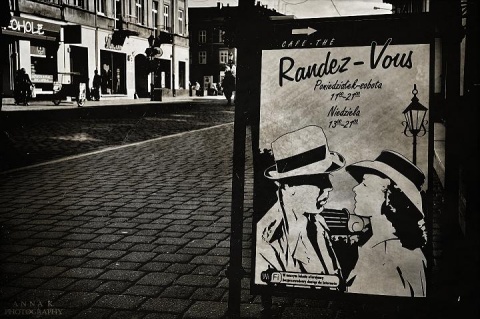 OHOLE
CAFE-THE
Randez-Vous
Poniedziałek-sobota
11⁰⁰-21⁰⁰
Niedziela
13⁰⁰-21⁰⁰
Wi Fi
ANNA K.
PHOTOGRAPHY